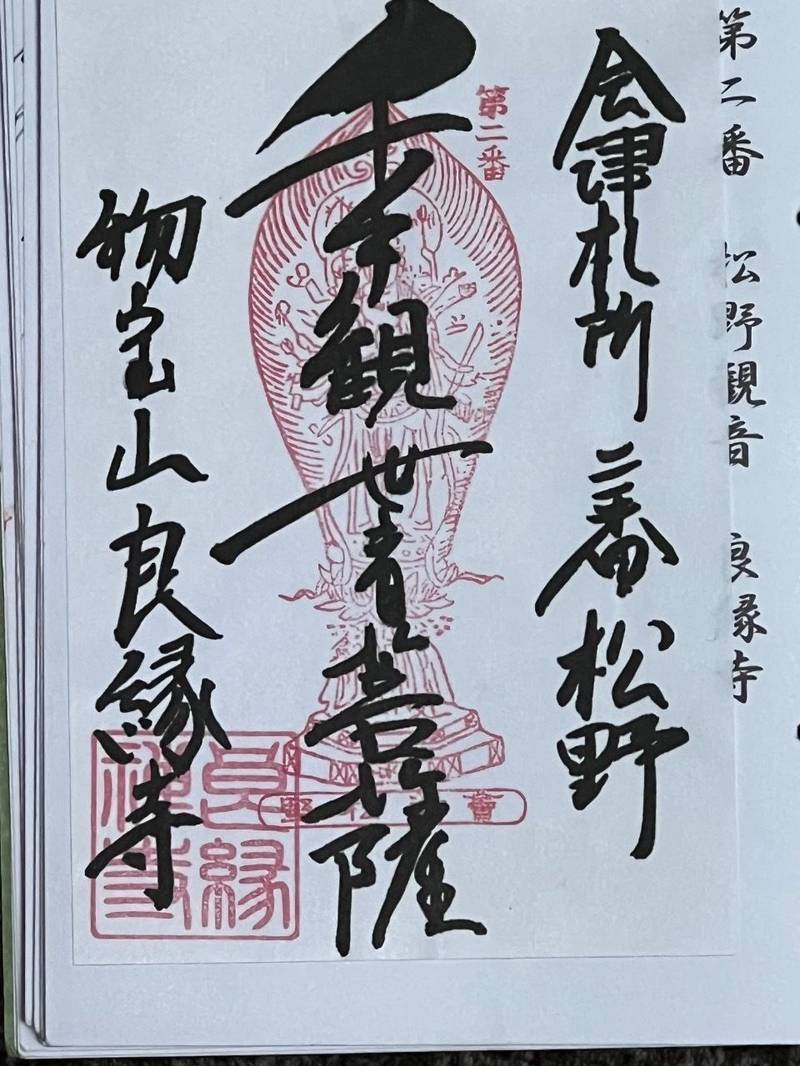 第二番 松野観音 良縁寺
会津札所二番松野
第二番
千手観世音菩薩
物宝山良縁寺
良縁禅寺